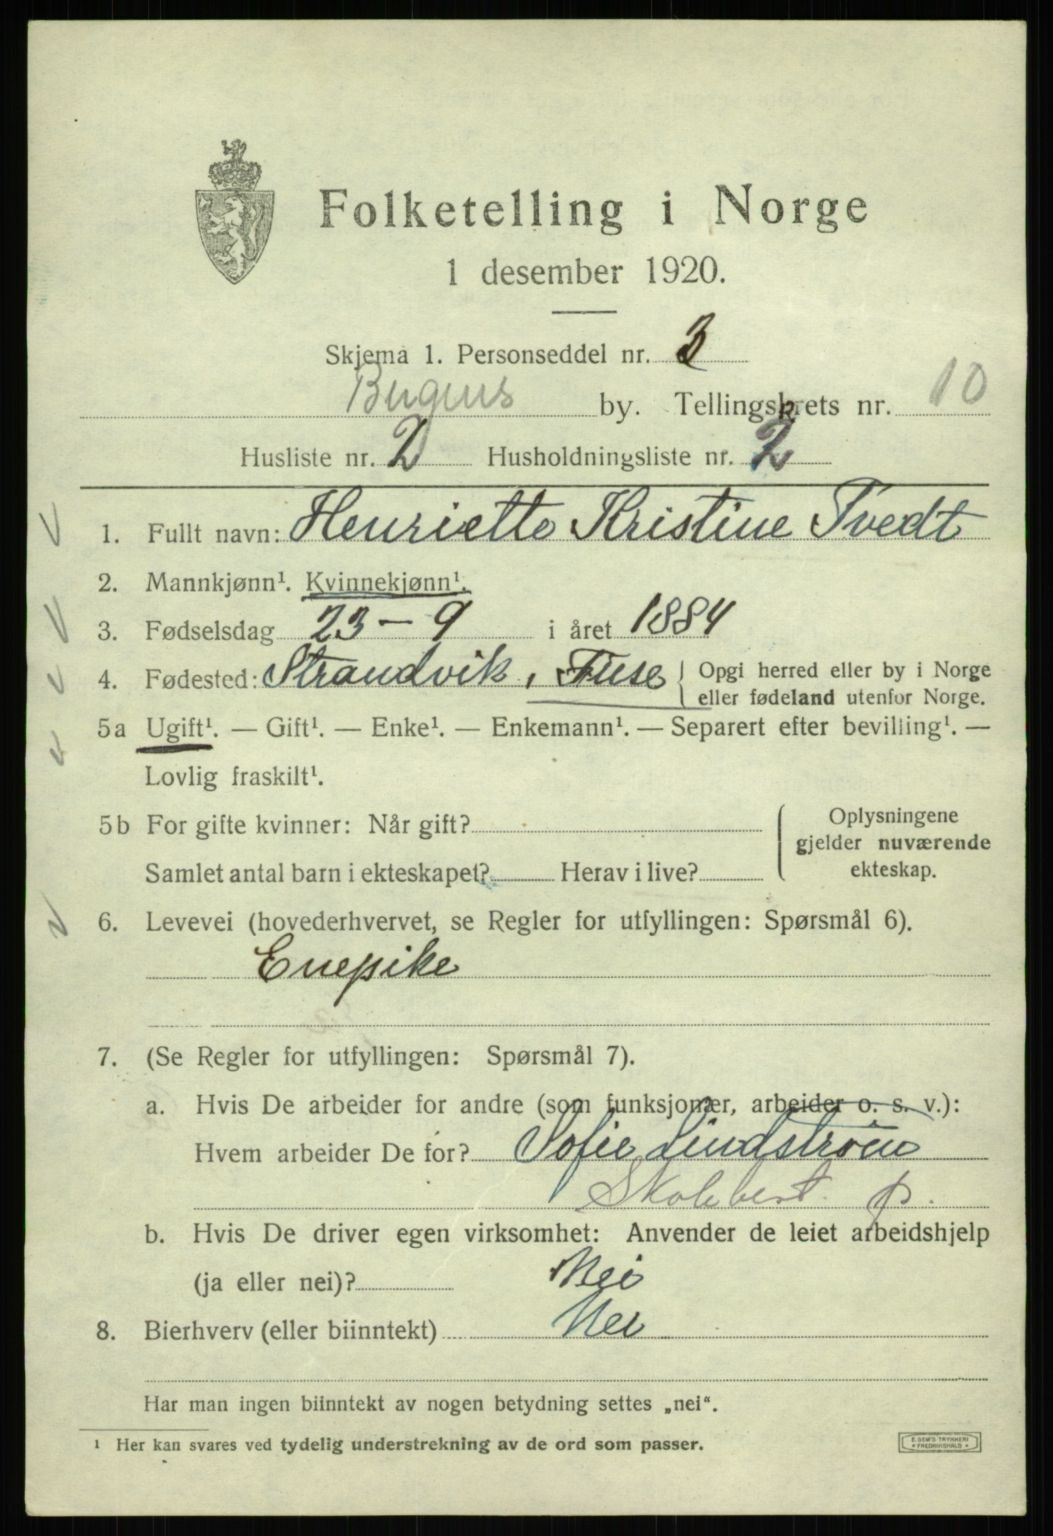 Folketelling i Norge
1 desember 1920.
Skjema 1. Personseddel nr. 3
Bergens by. Tellingskrets nr. 10
Husliste nr. 2 Husholdningsliste nr. 2
1. Fullt navn: Henriette Kristine Tvedt
2. Mannkjønn¹. Kvinnekjønn¹.
3. Fødselsdag 23 - 9 i året 1884
4. Fødested: Strandvik, Fuse { Opgi herred eller by i Norge
eller fødeland utenfor Norge.
5a Ugift¹. — Gift¹. — Enke¹. — Enkemann¹. — Separert efter bevilling¹. —
Lovlig fraskilt¹.
5b For gifte kvinner: Når gift?
Samlet antal barn i ekteskapet? Herav i live?
{ Oplysningene
gjelder nuværende
ekteskap.
6. Levevei (hovederhvervet, se Regler for utfyllingen: Spørsmål 6).
Enepike
7. (Se Regler for utfyllingen: Spørsmål 7).
a. Hvis De arbeider for andre (som funksjonær, arbeider o. s. v.):
Hvem arbeider De for? Sofie Lindstrøm
b. Hvis De driver egen virksomhet: Anvender de leiet arbeidshjelp
(ja eller nei)? Nei
8. Bierhverv (eller biinntekt) Nei
Har man ingen biinntekt av nogen betydning settes „nei“.
¹ Her kan svares ved tydelig understrekning av de ord som passer.
E. SEM'S TRYKKERI
* FREDRIKSHALD *